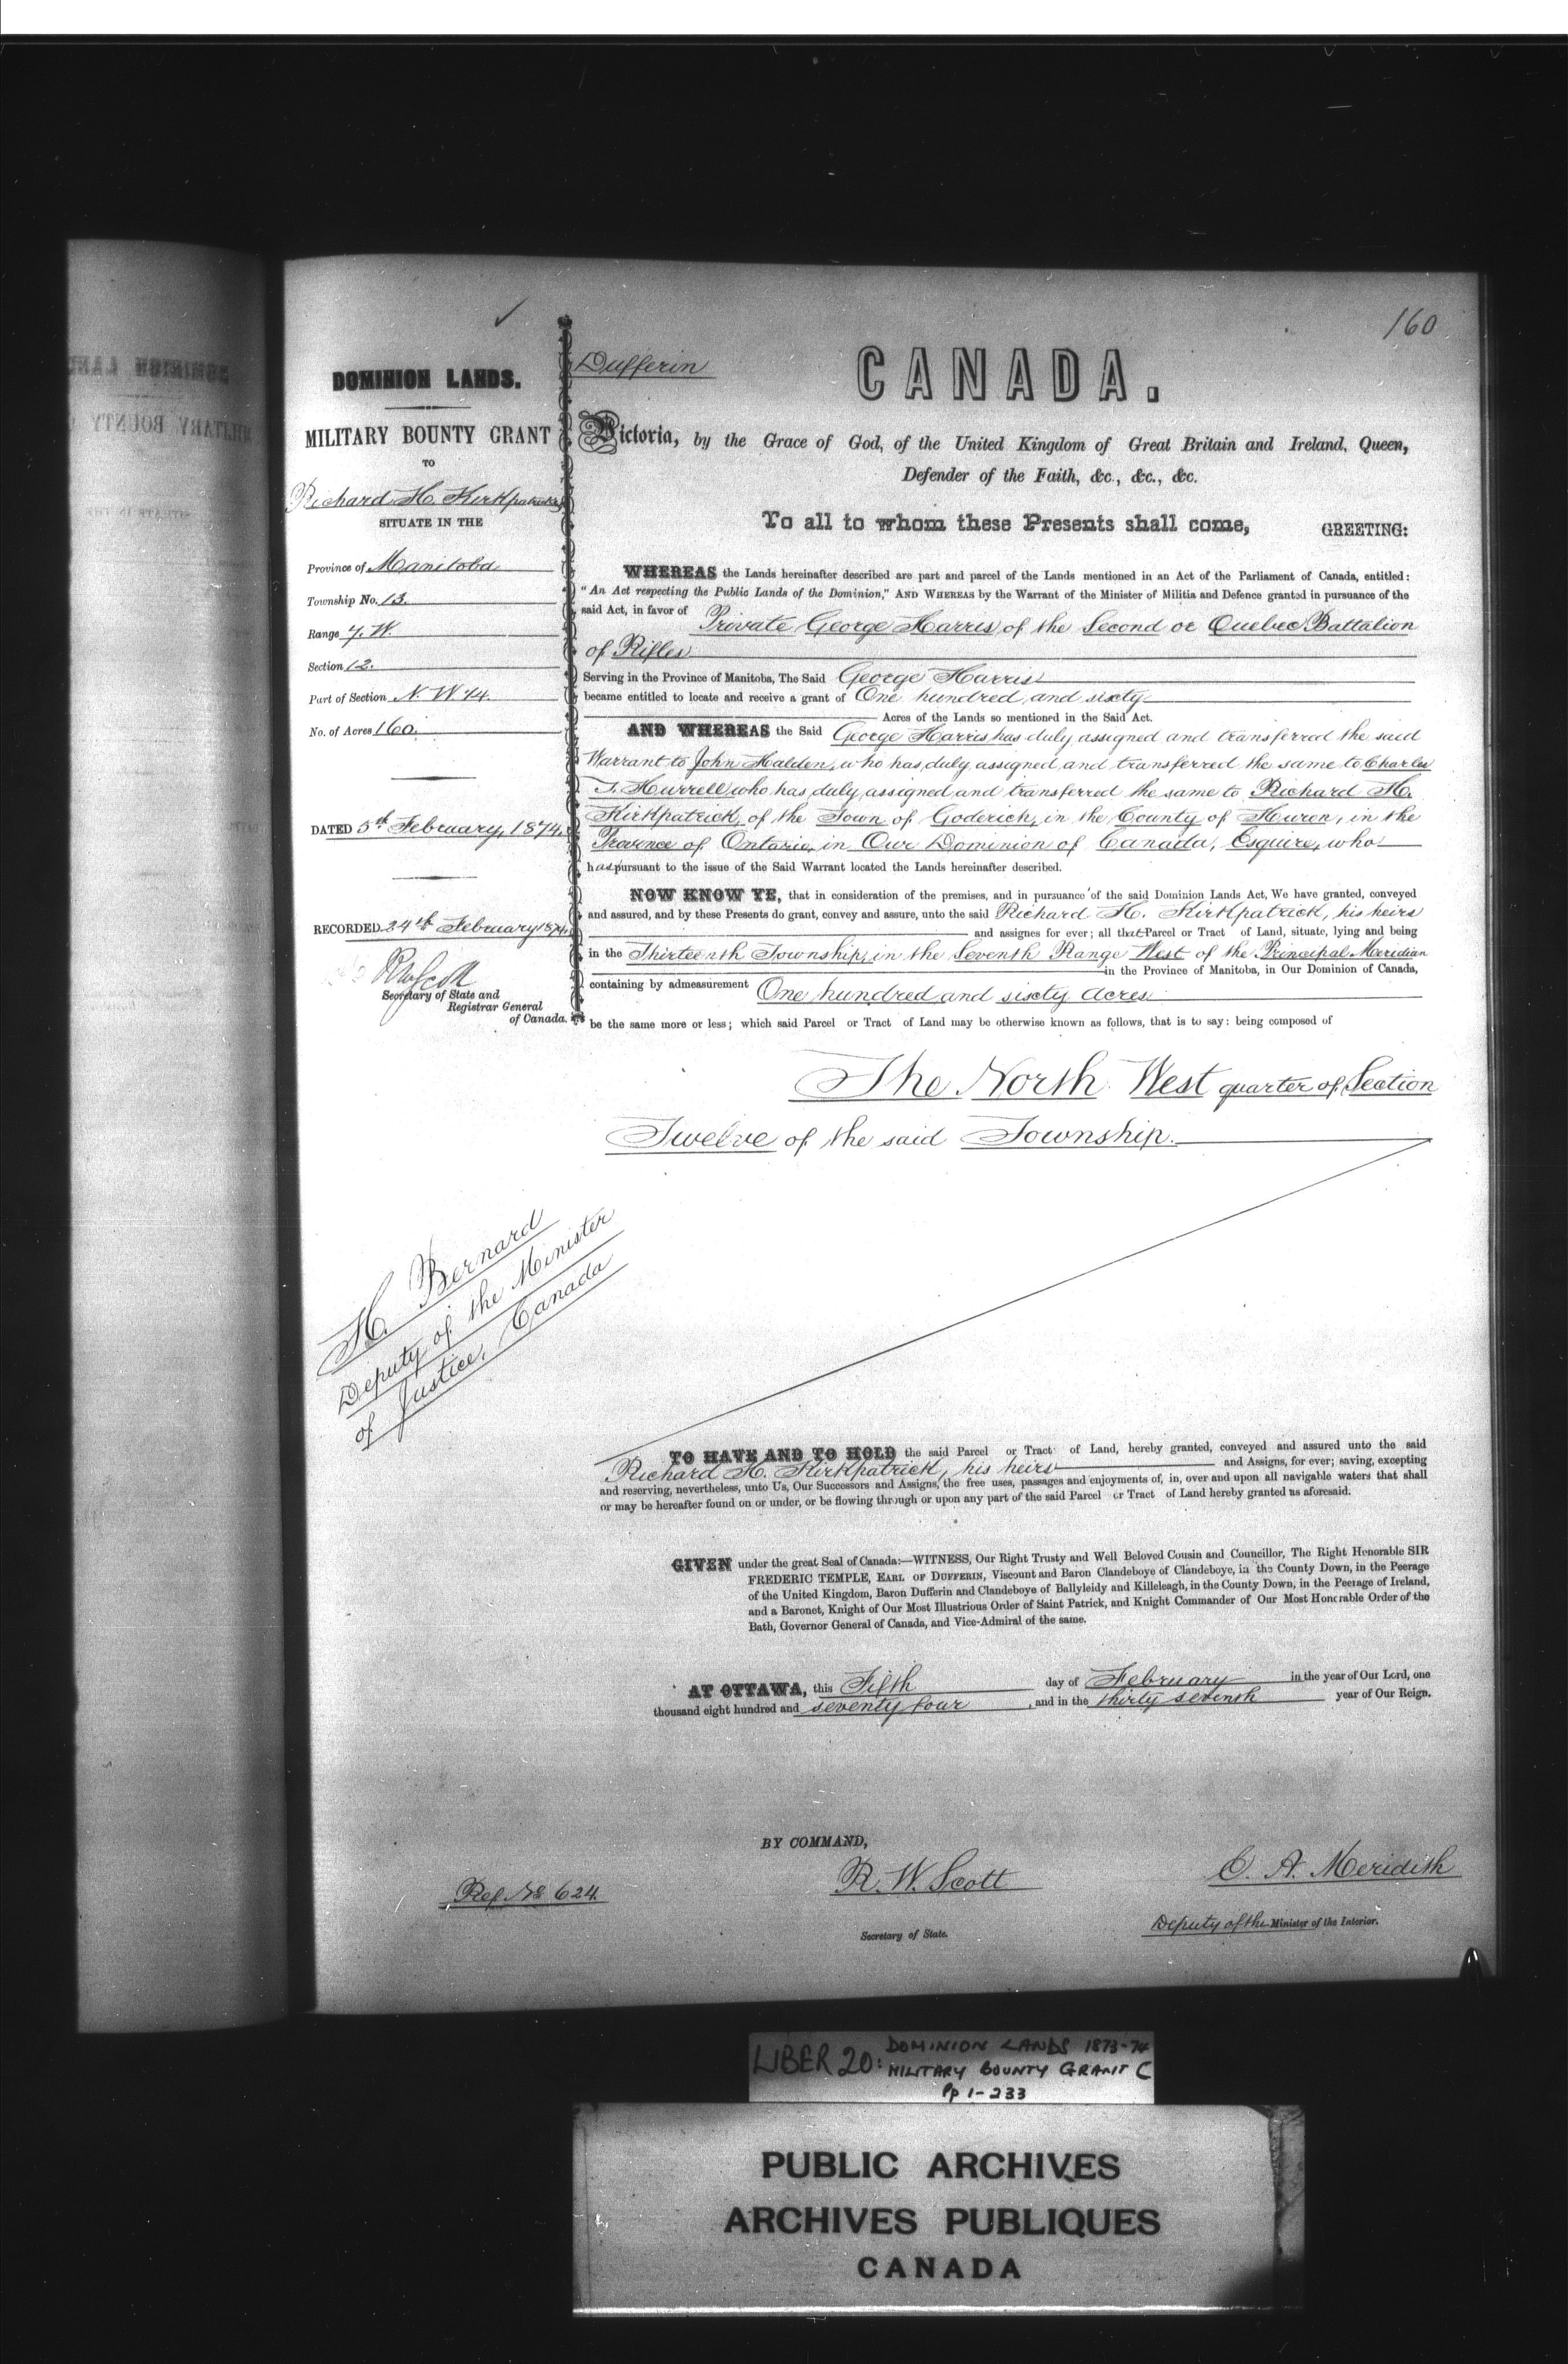 160
DOMINION LANDS.
MILITARY BOUNTY GRANT
TO
Richard H. Kirkpatrick
SITUATE IN THE
Province of Manitoba
Township No. 13.
Range 7. W.
Section 12.
Part of Section N. W 1/4.
No. of Acres 160.
DATED 5th February, 1874.
RECORDED 24th February 1874.
RWScott
Secretary of State and
Registrar General
of Canada.
Dufferin
CANADA.
Victoria, by the Grace of God, of the United Kingdom of Great Britain and Ireland, Queen,
Defender of the Faith, &c., &c., &c.
To all to whom these Presents shall come, GREETING:
WHEREAS the Lands hereinafter described are part and parcel of the Lands mentioned in an Act of the Parliament of Canada, entitled:
"An Act respecting the Public Lands of the Dominion," AND WHEREAS by the Warrant of the Minister of Militia and Defence granted in pursuance of the
said Act, in favor of Private George Harris, of the Second or Quebec Battalion
of Rifles
Serving in the Province of Manitoba, The Said George Harris
became entitled to locate and receive a grant of One hundred and sixty
Acres of the Lands so mentioned in the Said Act.
AND WHEREAS the Said George Harris has duly assigned and transferred the said
Warrant to John Halden, who has duly assigned and transferred the same to Charles
T. Hurrell who has duly assigned and transferred the same to Richard H.
Kirkpatrick, of the Town of Goderich, in the County of Huron, in the
Province of Ontario, in Our Dominion of Canada, Esquire, who
has pursuant to the issue of the Said Warrant located the Lands hereinafter described.
NOW KNOW YE, that in consideration of the premises, and in pursuance of the said Dominion Lands Act, We have granted, conveyed
and assured, and by these Presents do grant, convey and assure, unto the said Richard H. Kirkpatrick, his heirs
and assignes for ever; all that Parcel or Tract of Land, situate, lying and being
in the Thirteenth Township, in the Seventh Range West of the Principal Meridian
in the Province of Manitoba, in Our Dominion of Canada,
containing by admeasurement One hundred and sixty acres
be the same more or less; which said Parcel or Tract of Land may be otherwise known as follows, that is to say: being composed of
The North West quarter of Section
Twelve of the said Township.
H. Bernard
Deputy of the Minister
of Justice, Canada
TO HAVE AND TO HOLD the said Parcel or Tract of Land, hereby granted, conveyed and assured unto the said
Richard H. Kirkpatrick, his heirs and Assigns, for ever; saving, excepting
and reserving, nevertheless, unto Us, Our Successors and Assigns, the free uses, passages and enjoyments of, in, over and upon all navigable waters that shall
or may be hereafter found on or under, or be flowing through or upon any part of the said Parcel or Tract of Land hereby granted as aforesaid.
GIVEN under the great Seal of Canada:—WITNESS, Our Right Trusty and Well Beloved Cousin and Councillor, The Right Honorable SIR
FREDERIC TEMPLE, EARL OF DUFFERIN, Viscount and Baron Clandeboye of Clandeboye, in the County Down, in the Peerage
of the United Kingdom, Baron Dufferin and Clandeboye of Ballyleidy and Killeleagh, in the County Down, in the Peerage of Ireland,
and a Baronet, Knight of Our Most Illustrious Order of Saint Patrick, and Knight Commander of Our Most Honorable Order of the
Bath, Governor General of Canada, and Vice-Admiral of the same.
AT OTTAWA, this Fifth day of February in the year of Our Lord, one
thousand eight hundred and seventy four, and in the thirty seventh year of Our Reign.
BY COMMAND,
Ref. No 624.
R. W. Scott
Secretary of State.
E. A. Meredith
Deputy of the Minister of the Interior.
LIBER 20: DOMINION LANDS 1873-74
MILITARY BOUNTY GRANT C
Pp 1-233
PUBLIC ARCHIVES
ARCHIVES PUBLIQUES
CANADA